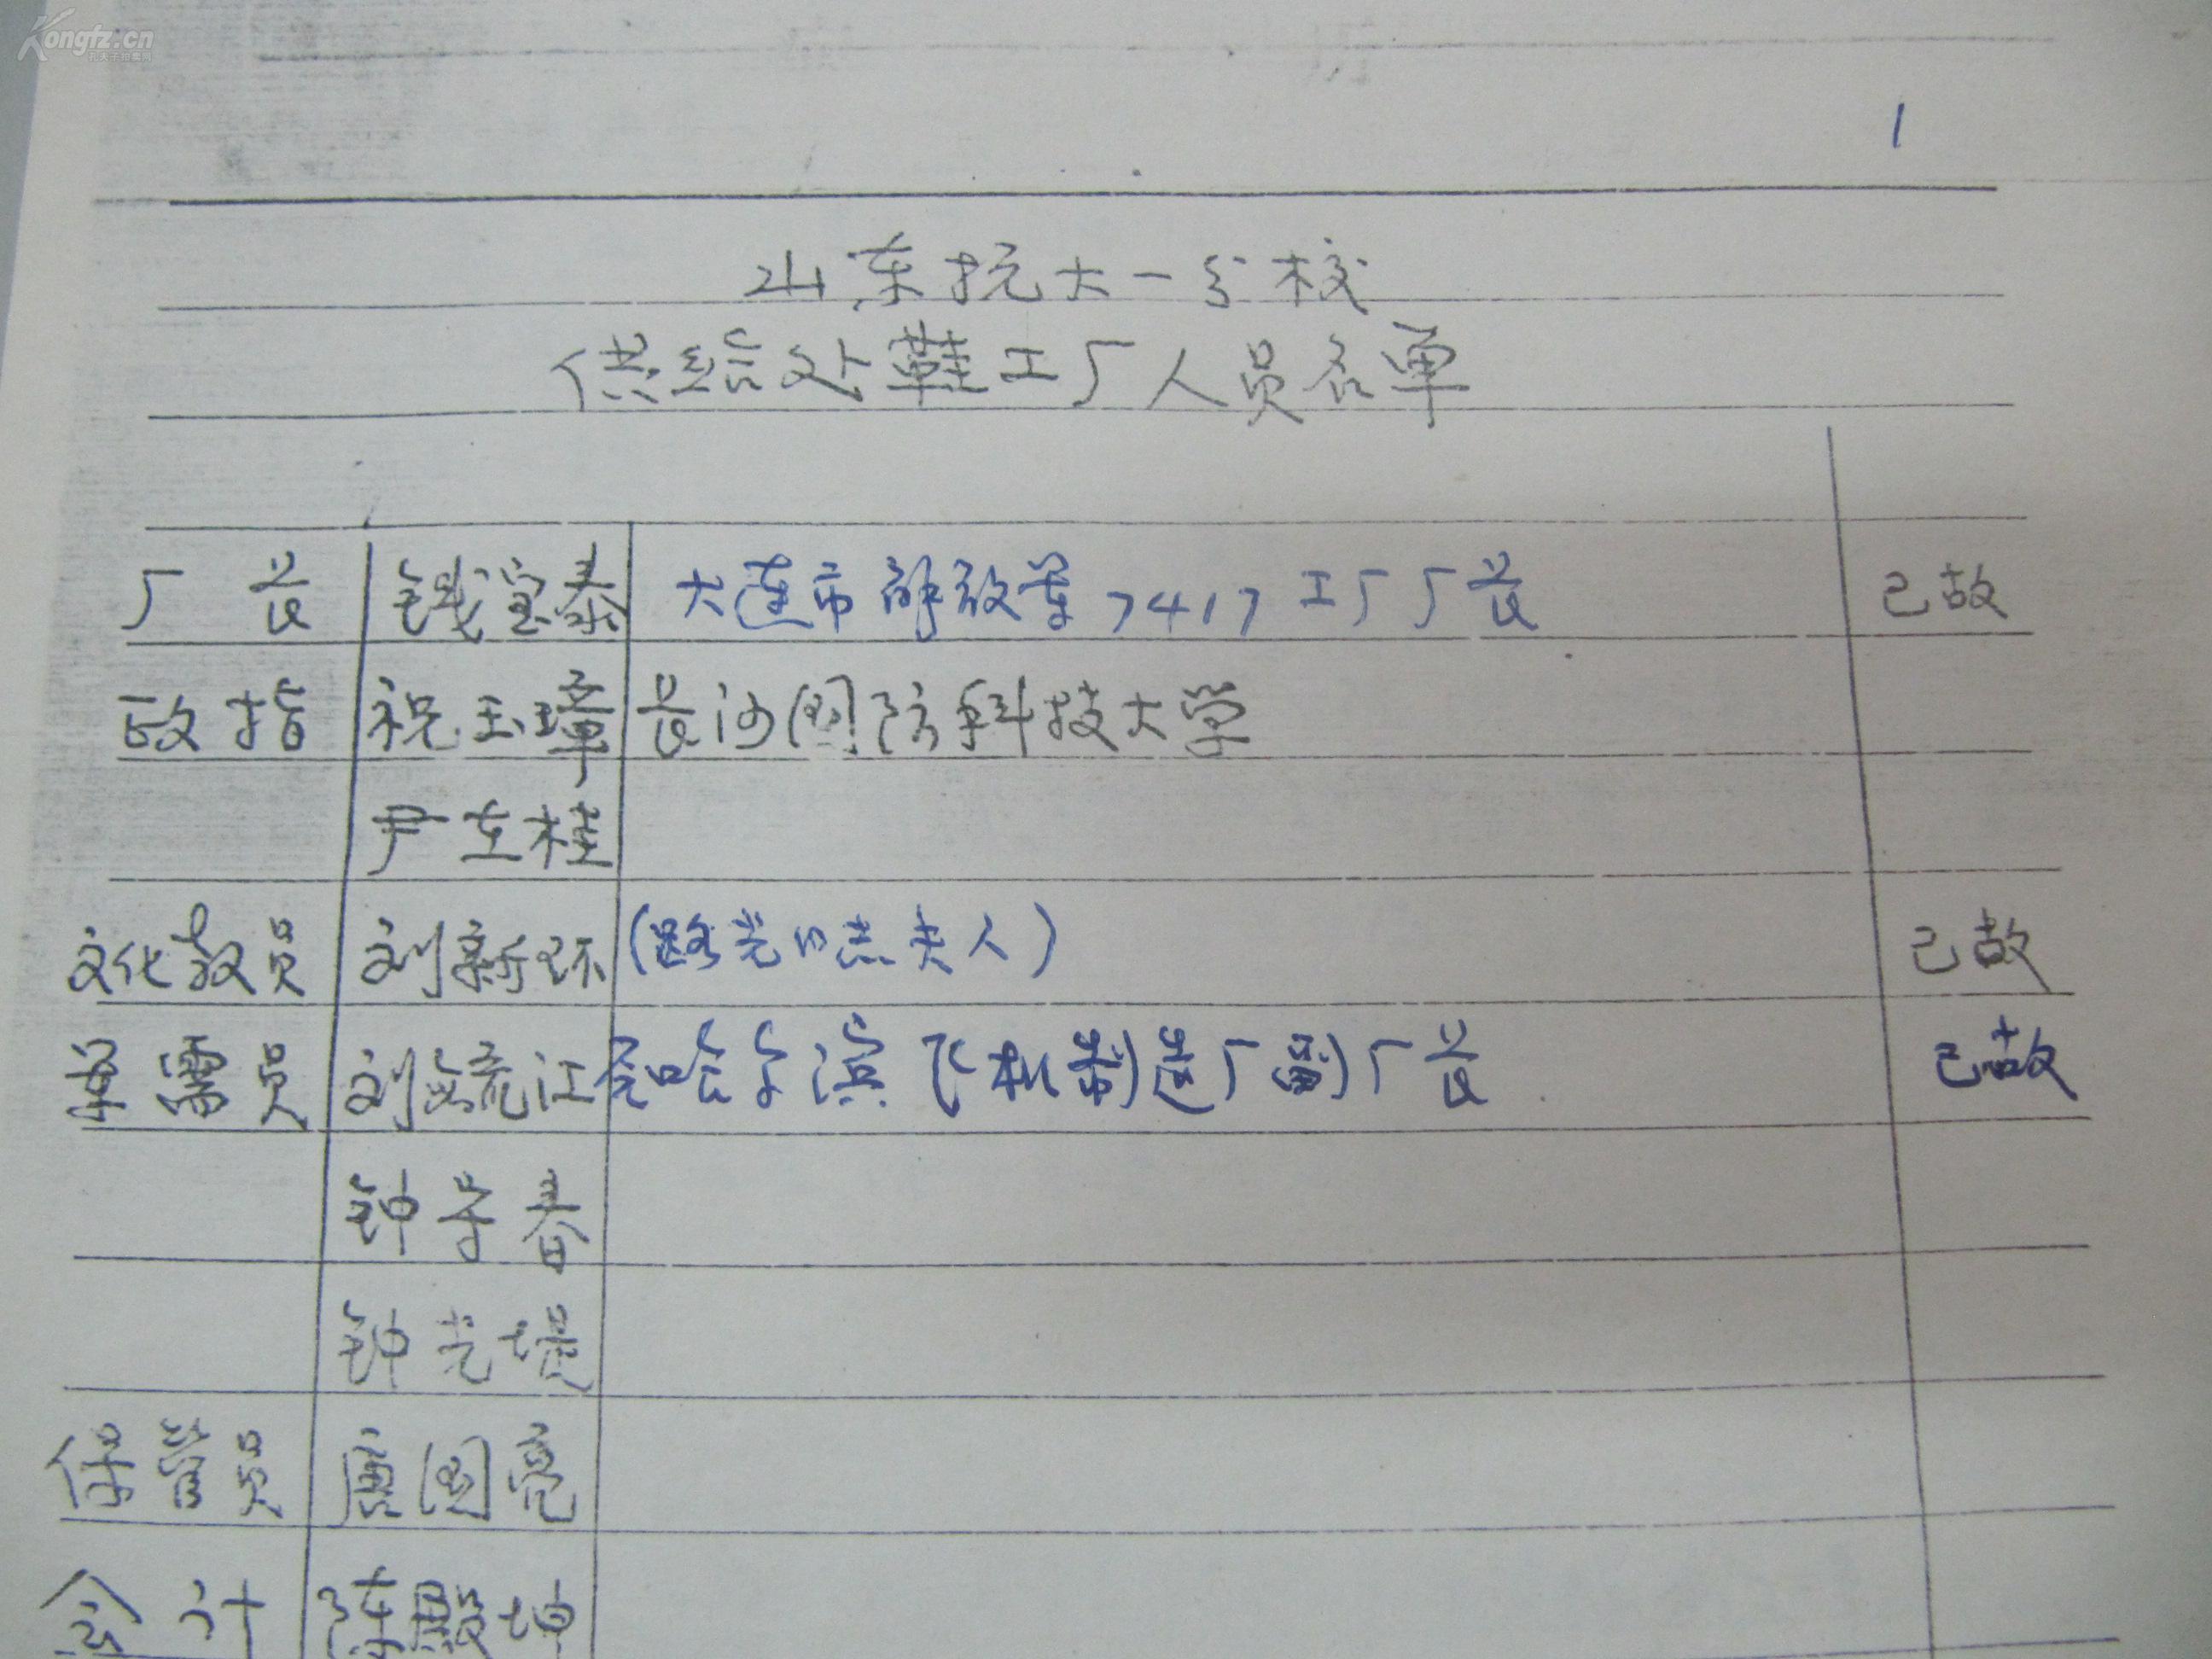 Kongfz.cn
1
山东抗大一分校
供给处鞋工厂人员名单
厂长 钱宝泰 大连市解放军7417工厂厂长 已故
政指 祝玉璋 长沙国防科技大学
尹在桂
文化教员 刘新环 (路光 夫人) 已故
刘毓江 哈尔滨飞机制造厂副厂长 已故
钟学春
钟光堤
保管员 唐国亮
会计 陈殿坤